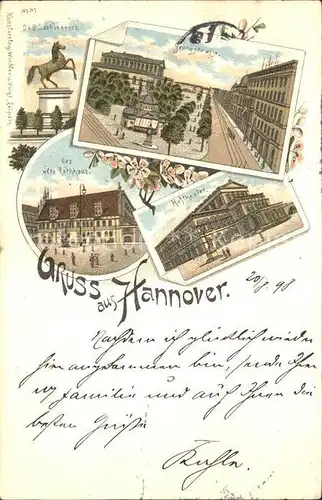 Das Sachsenross
Georgstrasse
Das
alte Rathhaus.
Hoftheater.
Gruss
aus Hannover.
20/8 98
Nachdem ich glücklich wieder
hier angekommen bin, sende Ihnen
Familie und auf Ihnen die
besten Grüße